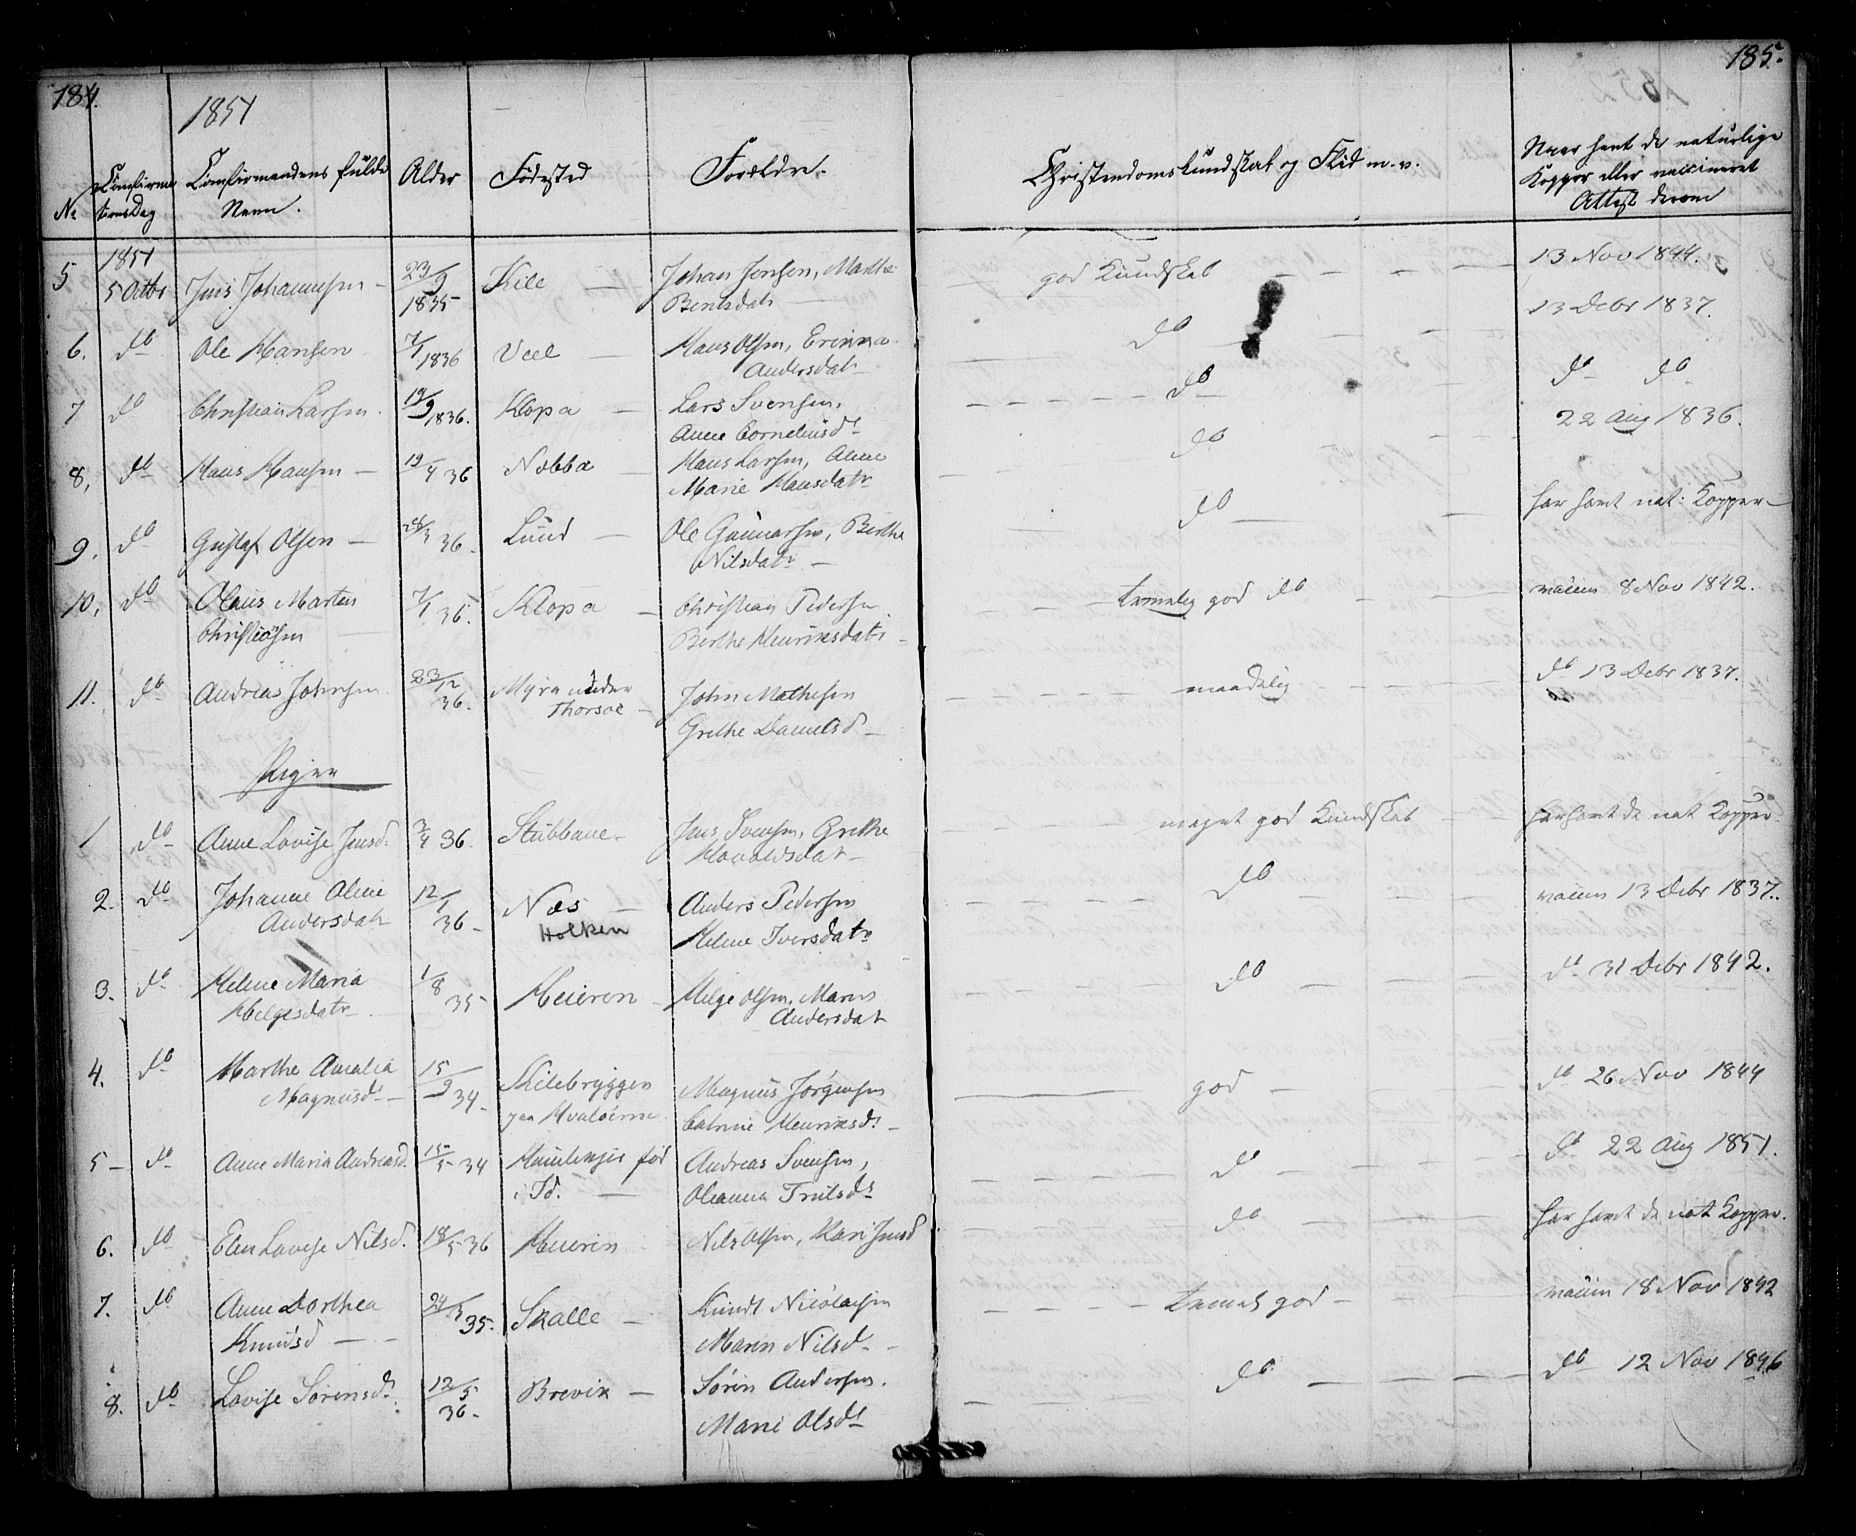 184. 185.
1851
No Confirmationsdag Confirmandens fulde Navn. Alder Fødested Forældre. Christendomskundskab og Flid m. v. Naar havt de naturlige Kopper eller vaccineret Attest derom
5 1851 5 Octbr Jens Johannesen - 23/9 1835 Kile - Johan Jensen, Marthe Bentsdatr god Kundskab 13 Nov 1844.
6. do Ole Hansen 7/1 1836 Vael - Hans Olsen, Erinna Andersdatr do 13 Debr 1837.
7 do Christian Larsen. 19/9 1836. Klopa - Lars Svensen, Anne Corneliusdt do do do
8, do Hans Hansen - 19/4 36 Nabba - Hans Larsen, Anne Marie Hansdatr do 22 Aug 1836.
9. do Gustaf Olsen - 36. Lund - Ole Gunnarsen, Berthe Nilsdatr - do har havt nat: Kopper
10, do Olaus Martin Christiansen 7/1 36. Klopa - Christian Pedersen Berthe Henriksdatr - temmelig god do vaccin 8 Nov 1842.
11. do Andreas Johnsen 23/12 36. Myra under Thorsøe - John Mathisen Grethe Danielsd - maadelig do 13 Debr 1837.
Piger
1 do Anne Lovise Jensd. 3/4 36. Stubbane - Jens Svensen, Grethe Havoldsdat - meget god Kundskab har havt de nat Kopper.
2. do Johanne Oline Andersdatr 12/1 36 - Næs - Holken Anders Pedersen Helene Iversdatr do vaccin 13 Debr 1837.
3. do Helene Maria Helgesdatr 1/8 35 - Heieren - Helge Olsen, Maren Andersdat do do 31 Debr 1842.
4. do Marthe Amalia Magnusdt - 15/9 34 - Kilebryggen paa Hvaløerne Magnus Jørgensen Catrine Henriksdt - god do 26 Nov 1844
5 - do Anne Maria Andreasd. 15/5 34 fød i Id. - Andreas Svensen, Oleanna Trulsdt do do 22 Aug 1851.
6. do Elen Lovise Nilsd. 18/5 36 Heieren Nils Olsen, Kari Jensd do har havt de nat Kopper.
7. do Anne Dorthea Knudsd - 24/3 35. Skalle - Knudt Nicolaysen Maren Nilsd - temml god - vaccin 18 Nov 1842
8. do Lovise Sørensd. 12/5 36 - Brevik - Søren Andersen. Marie Olsdt do do 12 Nov 1846